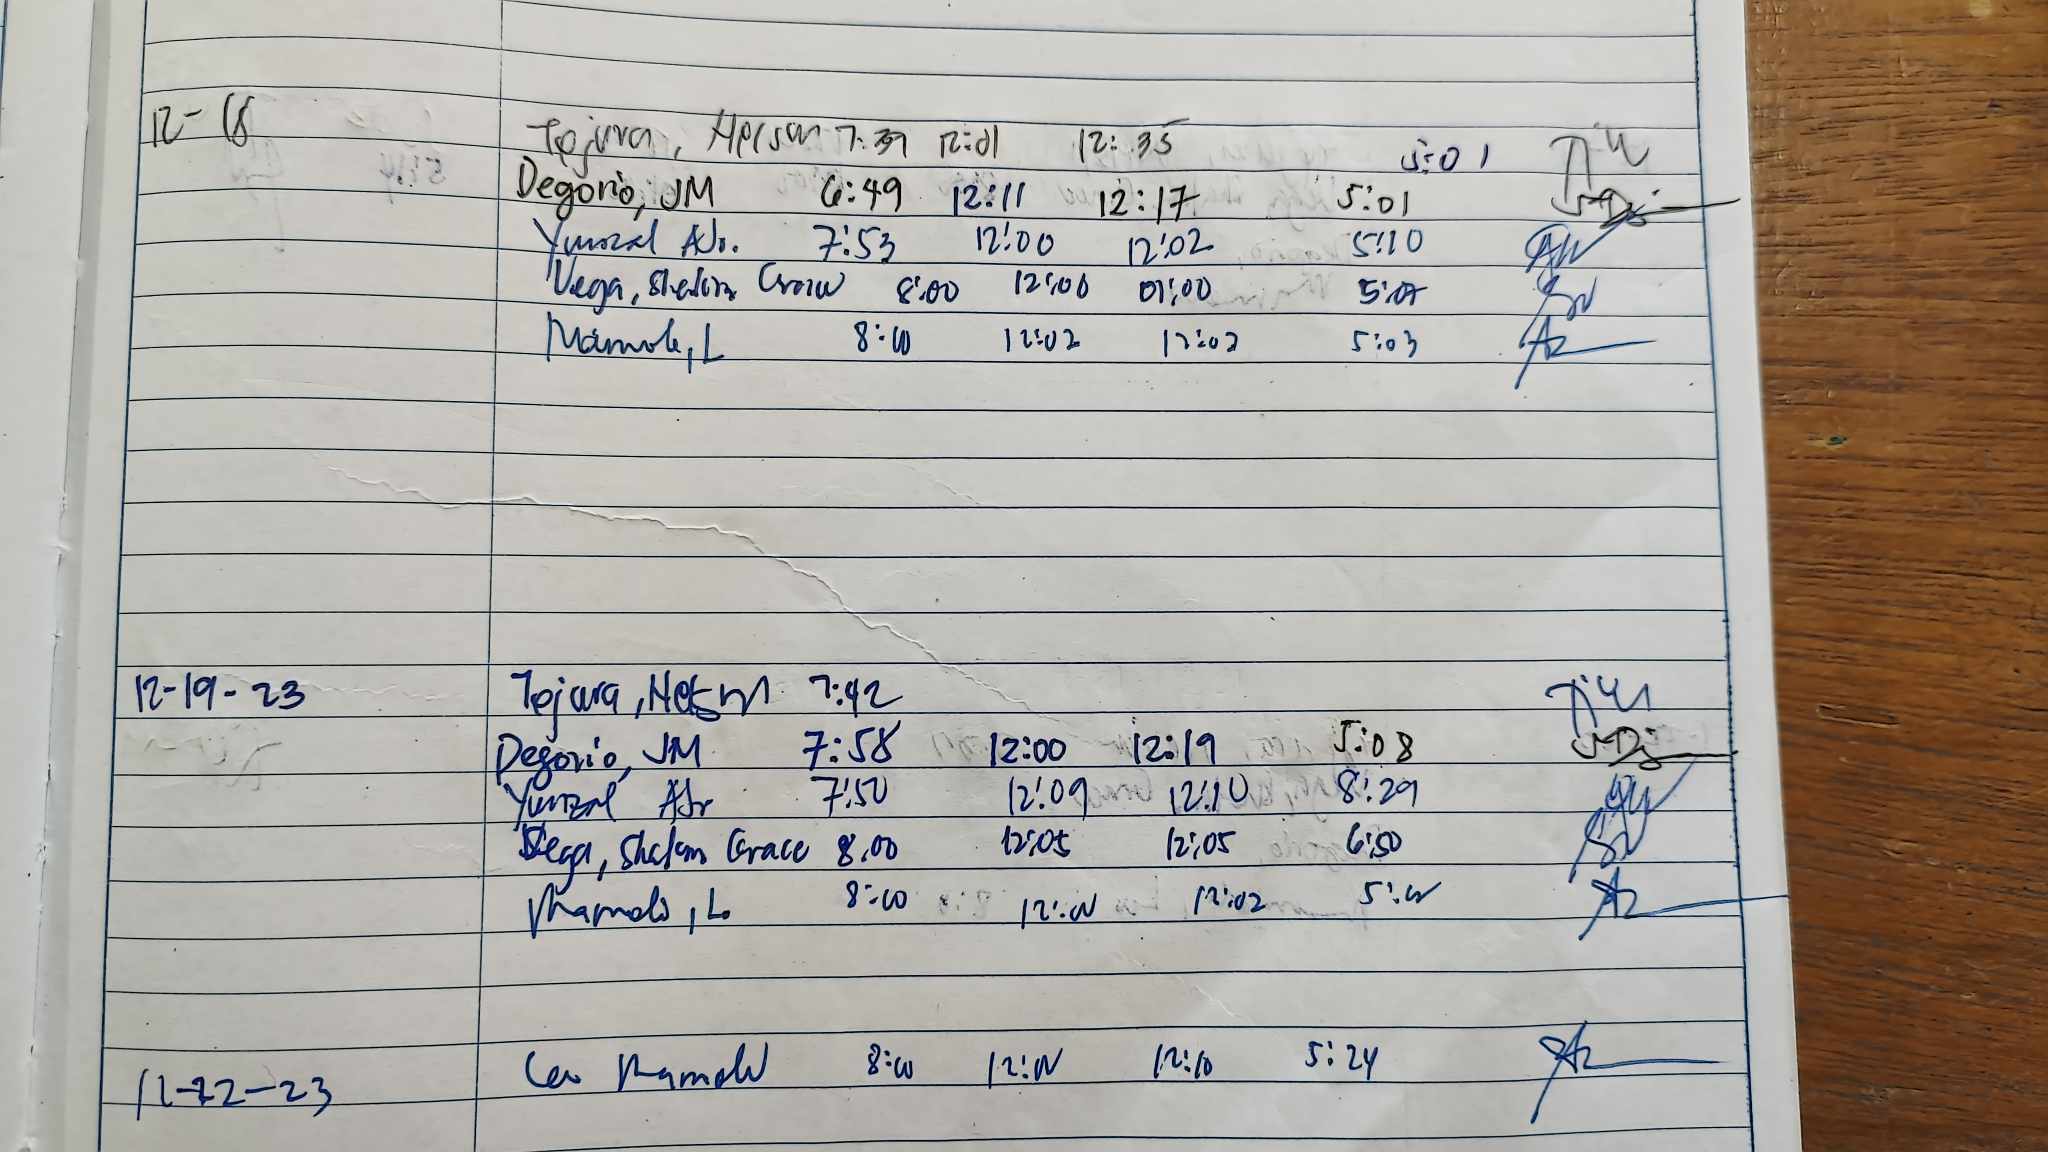 12-18 Tejura, Nelson 7:39 12:01 12:35 5:01
Degorio, JM 6:49 12:11 12:17 5:01
Yunzal AJr. 7:53 12:00 12:02 5:10
Vega, Shalom Grace 8:00 12:00 01:00 5:07
Mamolo, L 8:00 12:02 12:02 5:03
12-19-23 Tejura, Nelson 7:42
Degorio, JM 7:58 12:00 12:19 5:08
Yunzal AJr 7:50 12:09 12:10 8:29
Vega, Shalom Grace 8:00 12:05 12:05 6:50
Mamolo, L. 8:00 12:02
12-22-23 Leo Mamolo 8:00 12:10 5:24